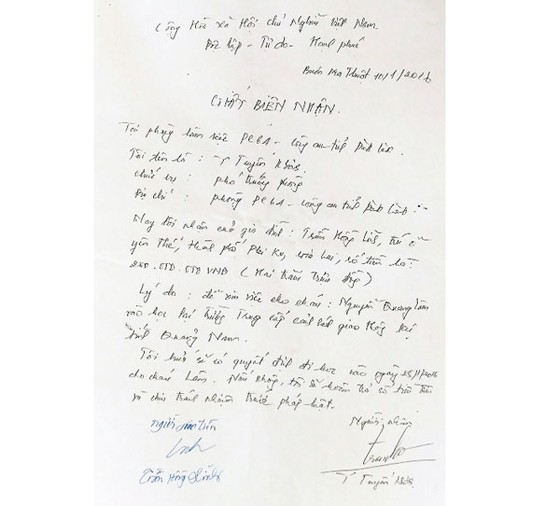 Cộng Hòa xã Hội chủ Nghĩa Việt Nam
Độc lập - Tự do - Hạnh phúc
Buôn Ma Thuột 10/1/2016
GIẤY BIÊN NHẬN.
Tại phòng làm việc PC81 - Công an tỉnh Đắk Lắk.
Tôi tên là : Y Tuyên
Chức vụ : phó trưởng phòng
Địa chỉ : phòng - công an tỉnh Đắk Lắk
Nay tôi nhận của gia đình : Trần Hồng trú ở
yên Thế, thành phố Plei Ku, Gia Lai, số tiền là:
200.000.000 VNĐ ( Hai trăm triệu đồng )
Lý do : để xin việc cho cháu : Nguyễn Quang Lâm
vào học hệ Trung cấp cảnh sát giao thông tại
tỉnh Quảng Nam.
Tôi hứa sẽ có quyết định đi học vào ngày 25/1/2016
cho cháu Lâm. Nếu không, tôi sẽ hoàn trả số tiền trên
và chịu trách nhiệm trước pháp luật.
Người giao tiền
Người nhận
Trần Hồng
Y Tuyên